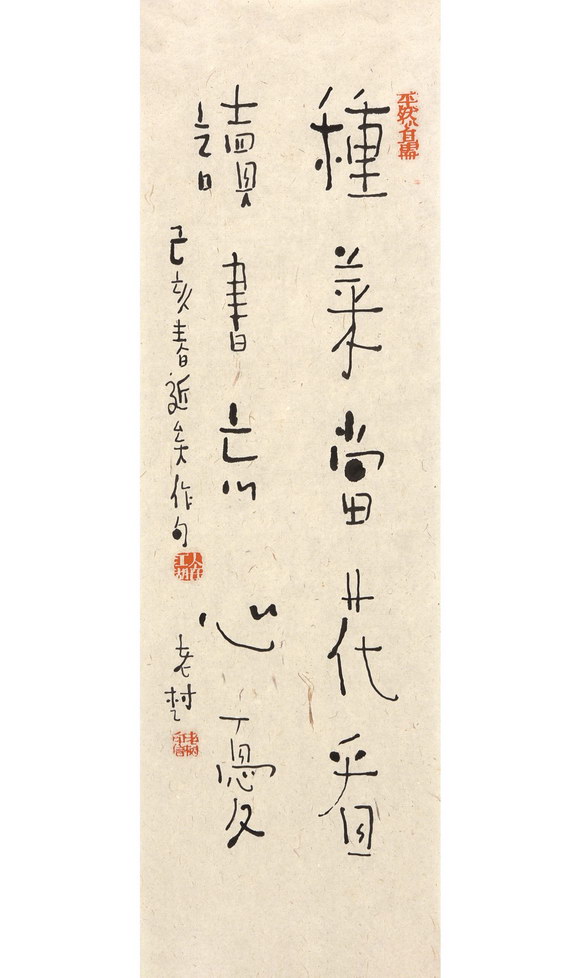 種菜當花看
讀書忘心憂
己亥春近矣作句
人在江湖
老村